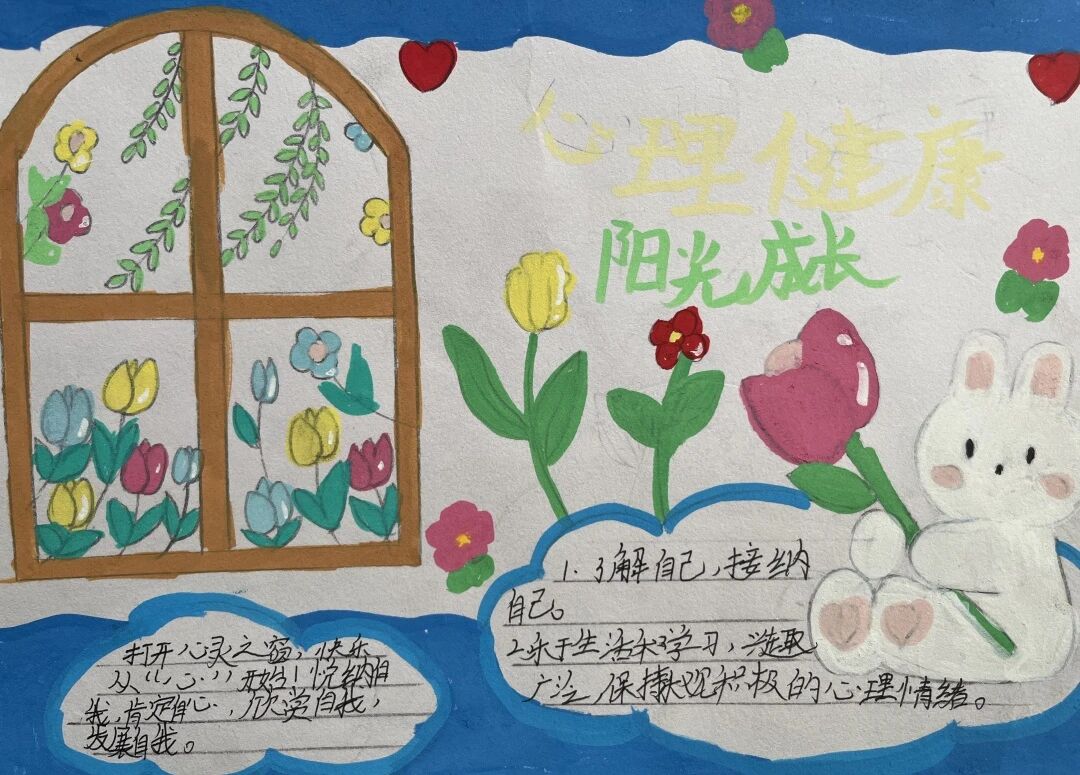 心理健康
阳光成长
1.了解自己,接纳
自己。
2.乐于生活乐学习,兴趣
广泛,保持乐观积极的心理情绪。
打开心灵之窗,快乐
从“心”开始!悦纳自
我,肯定自心,欣赏自我,
发展自我。